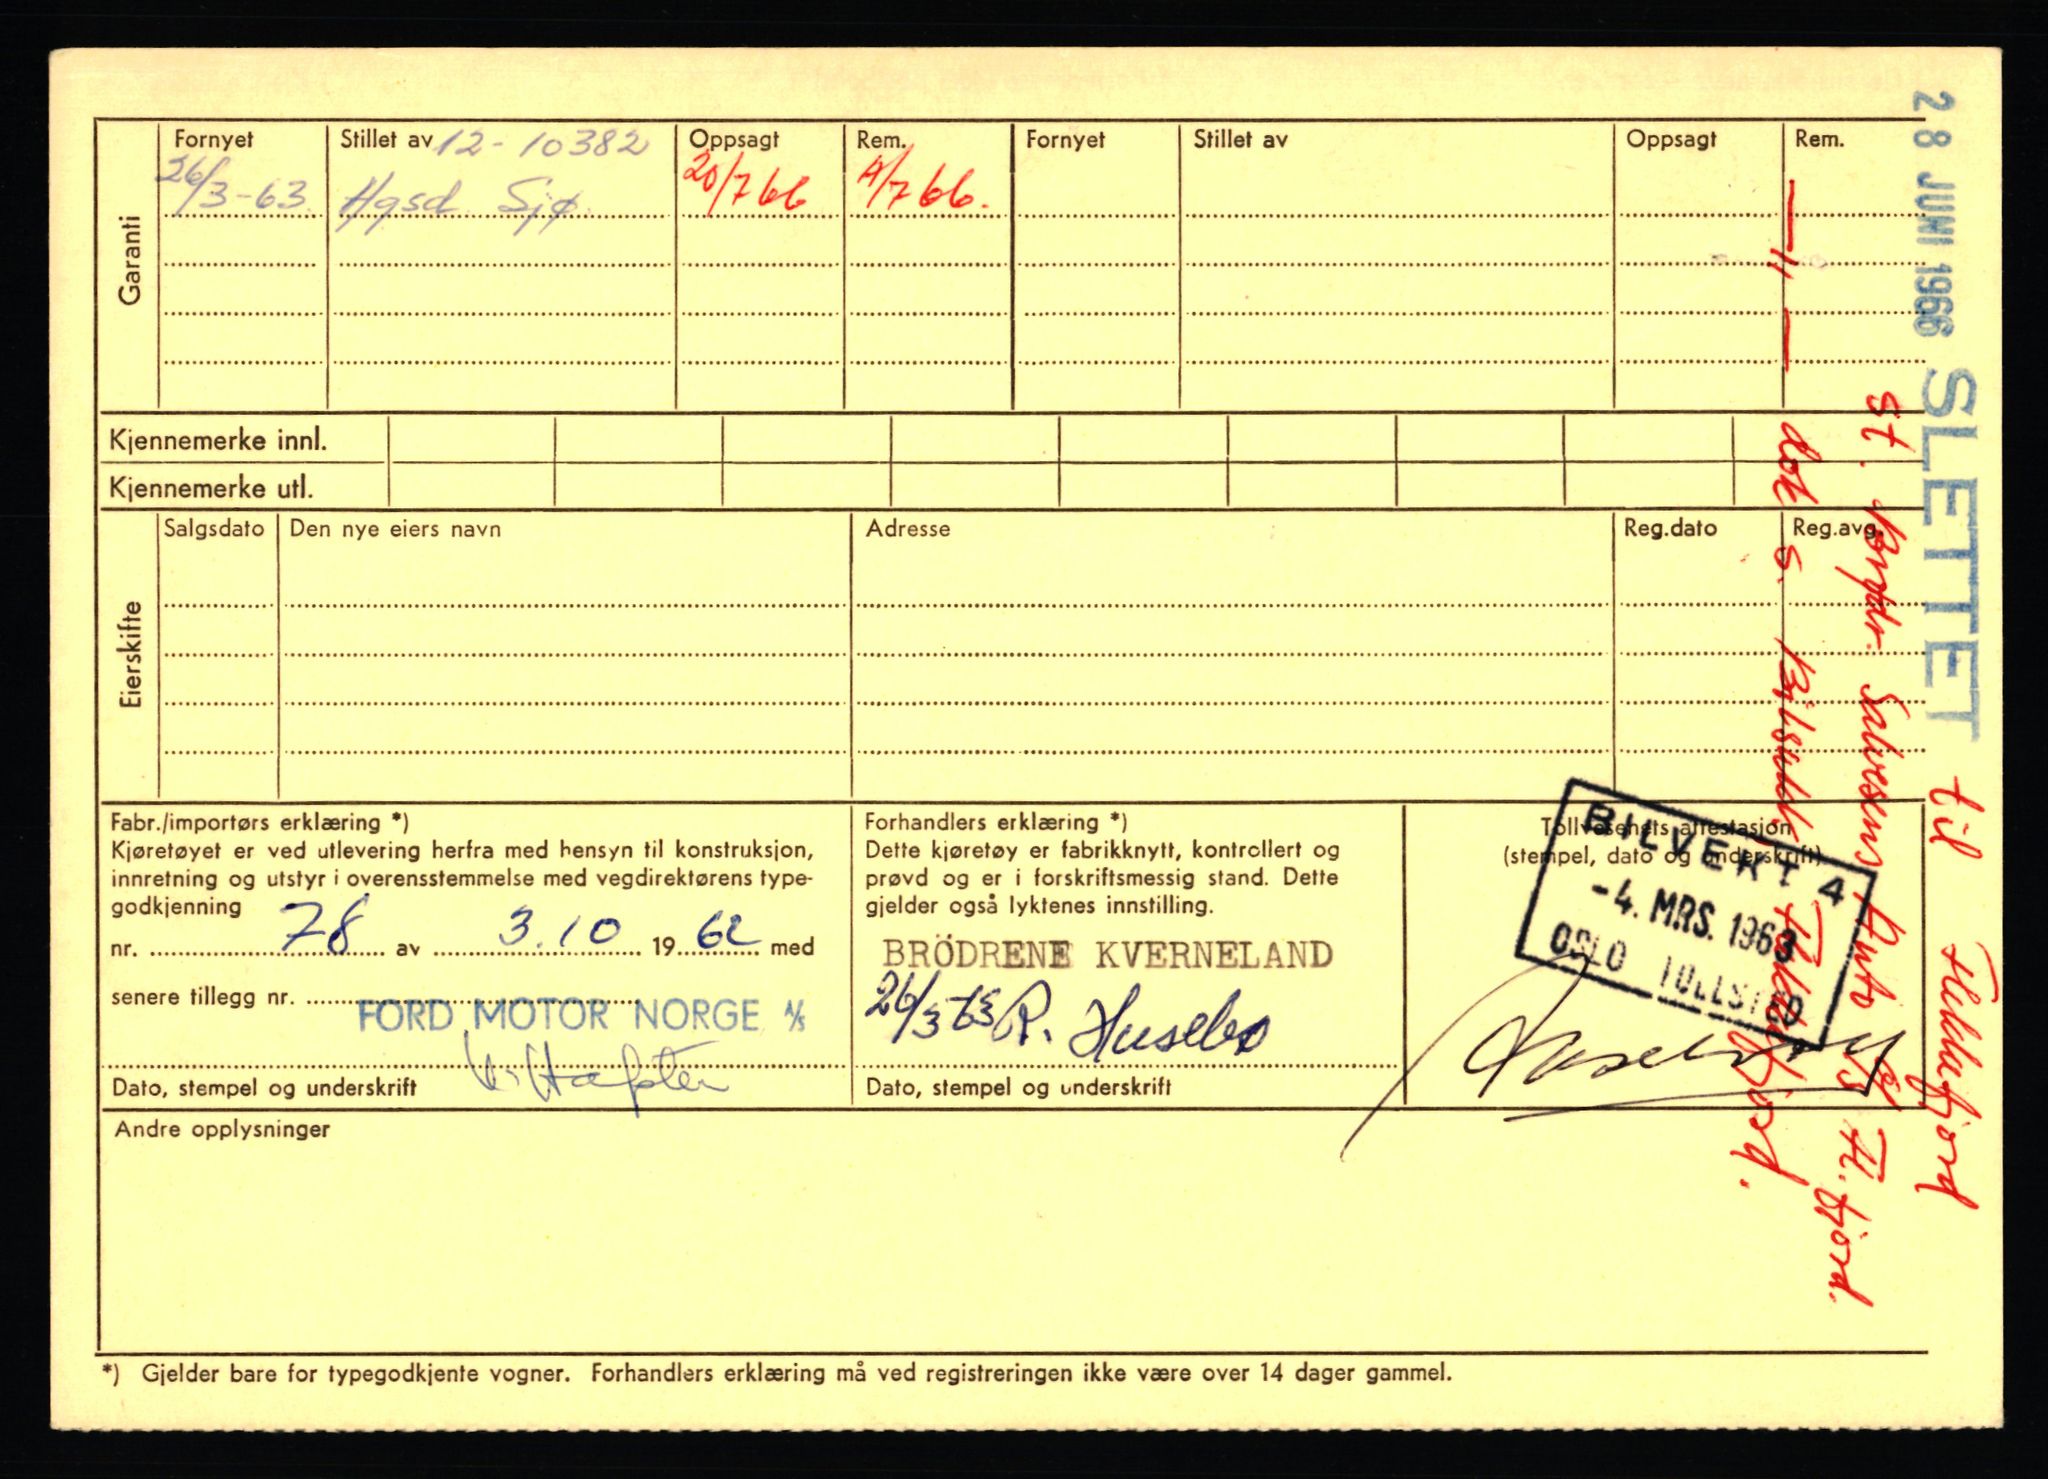 Garanti
Fornyet
Stillet av 12-10382
Oppsagt
Rem.
Fornyet
Stillet av
Oppsagt
Rem.
26/3-63. Hgsd Sjø. 20/7 66 4/7 66.
Kjennemerke innl.
Kjennemerke utl.
Eierskifte
Salgsdato
Den nye eiers navn
Adresse
Reg.dato
Reg.avg.
Fabr./importørs erklæring *)
Kjøretøyet er ved utlevering herfra med hensyn til konstruksjon,
innretning og utstyr i overensstemmelse med vegdirektørens type-
godkjenning
nr. 78 av 3.10 1962 med
senere tillegg nr.
FORD MOTOR NORGE A/S
Dato, stempel og underskrift
Forhandlers erklæring *)
Dette kjøretøy er fabrikknytt, kontrollert og
prøvd og er i forskriftsmessig stand. Dette
gjelder også lyktenes innstilling.
BRÖDRENE KVERNELAND
26/3-63 R. Husebø
Dato, stempel og underskrift
Tollvesenets attestasjon
(stempel, dato og underskrift)
BILVEKT 4
-4. MRS. 1963
OSLO TOLLSTED
Andre opplysninger
*) Gjelder bare for typegodkjente vogner. Forhandlers erklæring må ved registreringen ikke være over 14 dager gammel.
28 JUNI 1966 SLETTET til Flekkefjord
st. Salvesens Auto A/S Fl. fjord.
— 11 — dok s. Flekkefjord.